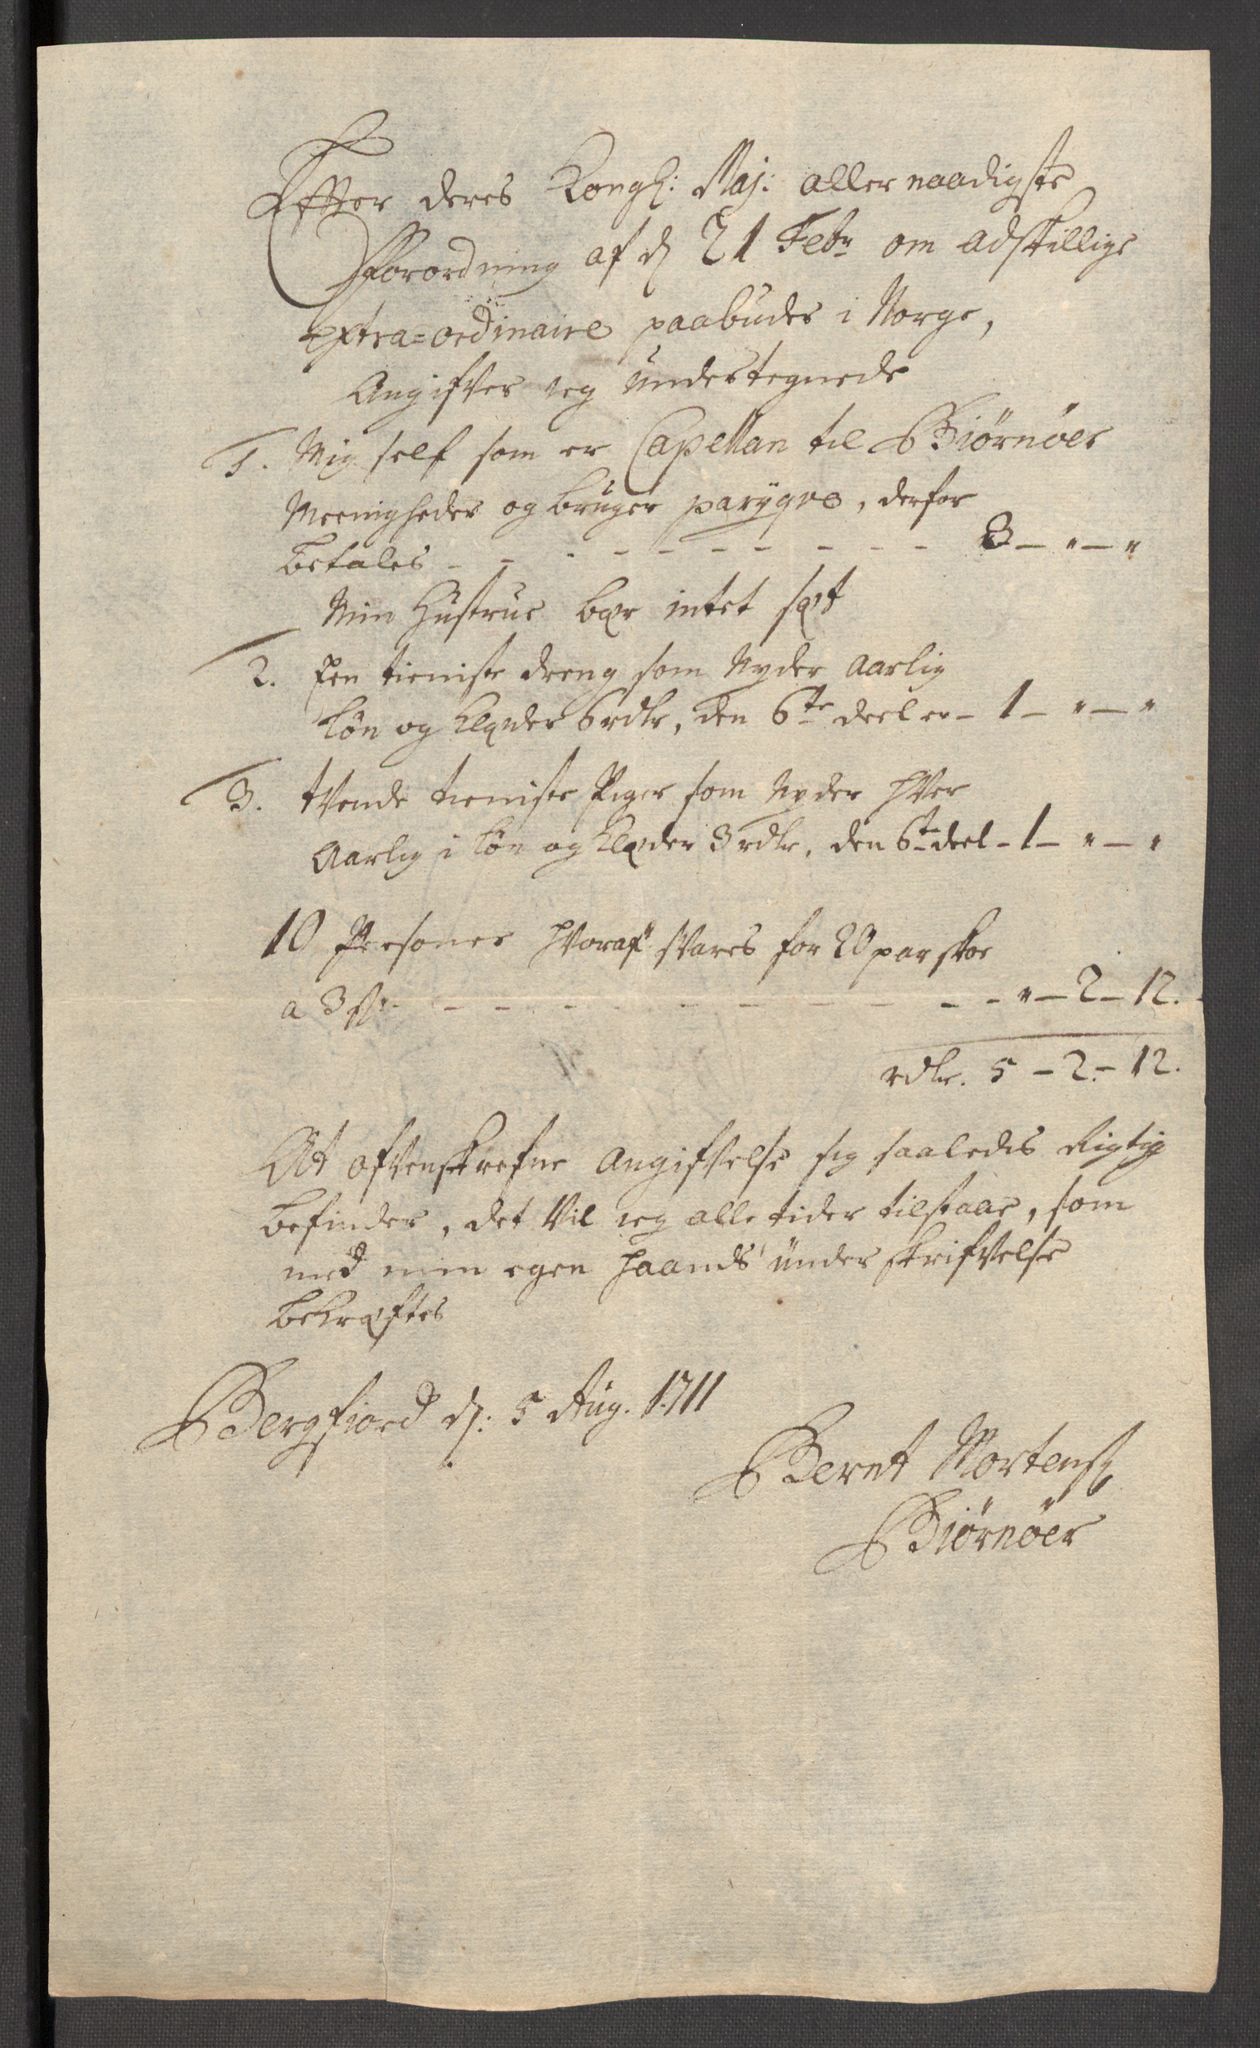 Effter deres Kongl: Maj: aller naadigste
Fforordning af dn 21 Febr om adskillige
extra=ordinaire paabuder i Norge,
Angifver ieg underteegnede
1. Mig self som er Capellan til Biørnøer
Meenigheder og bruger paryqve, derfor
betales - - - - - - - - - - - 3 - " - "
Min Hustrue bær intet sæt
2. Een tieniste dreng som Nyder aarlig
Løn og Klæder 6 rdlr, den 6te deel er - 1 - " - "
3. tvende tieniste Piger som Nyder hver
Aarlig i løn og Klæder 3 rdlr, den 6te deel - 1 - " - "
10 Personer hvoraf svares for 20 par skoe
a 3 s: - - - - - - - - - - - - " - 2 - 12.
rdlr. 5 - 2 - 12.
At ofvenskrefne Angifvelse sig saaledis Rigtig
befinder, det Vil ieg alle tider tilstaae, som
med min egen haands underskrifvelse
bekræftes
Bergfiord d: 5 Aug. 1711
Bernt Mortens:
Biørnøer